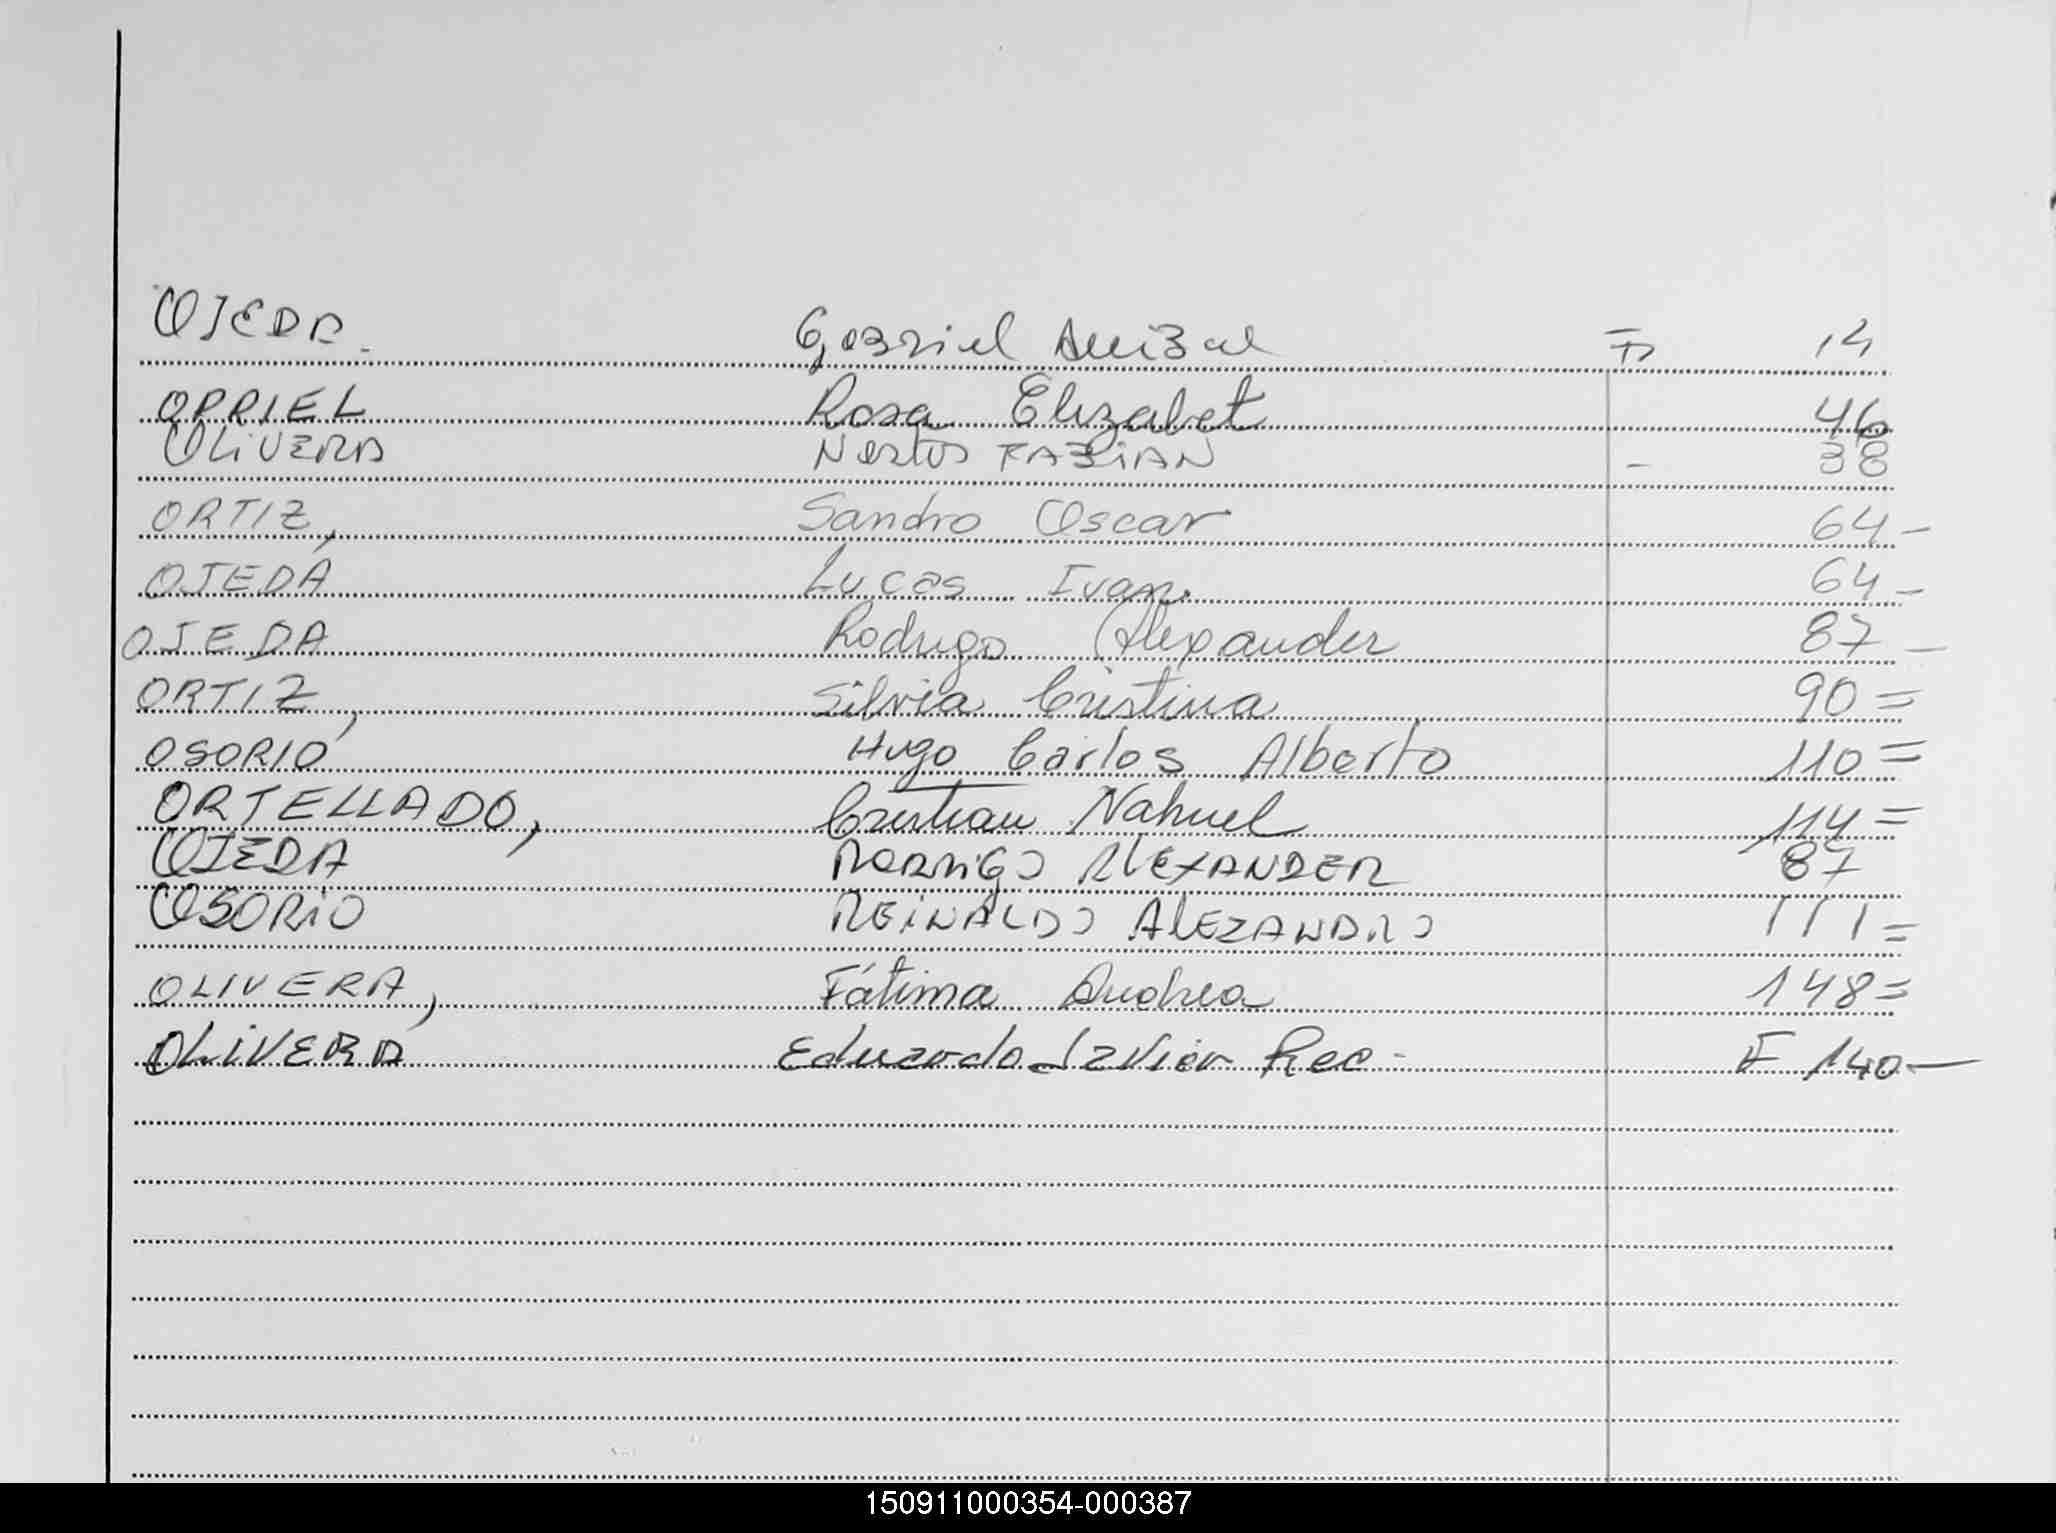 OJEDA. Gabriel Anibal Fº 14
OPRIEL Rosa Elizabet 46
OLIVERA Nestor FABIAN - 38
ORTIZ, Sandro Oscar 64 -
OJEDA Lucas Ivan. 64 -
OJEDA Rodrigo Alexander 87 -
ORTIZ, Silvia Cristina 90 =
OSORIO Hugo Carlos Alberto 110 =
ORTELLADO, Cristian Nahuel 114 =
OJEDA RODRIGO ALEXANDER 87
OSORIO REINALDO ALEZANDRO 111 =
OLIVERA, Fátima Andrea 148 =
OLIVERA Eduardo Javier Rec - F 140 -
150911000354-000387